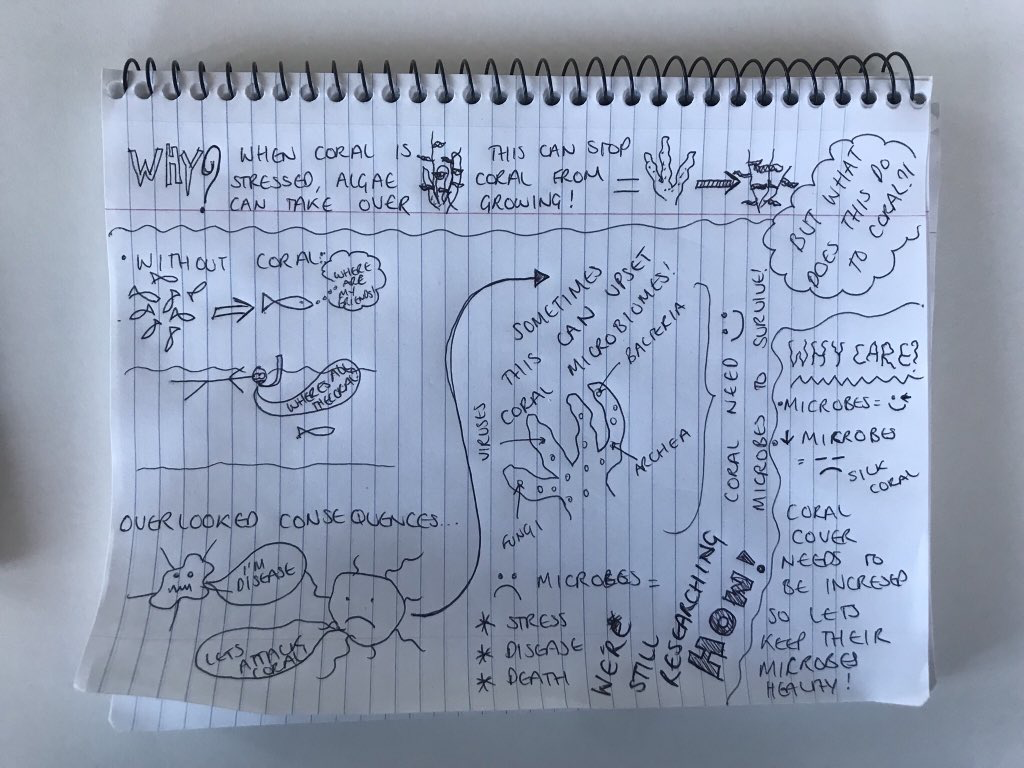 WHY?
WHEN CORAL IS
STRESSED, ALGAE
CAN TAKE OVER
THIS CAN STOP
CORAL FROM
GROWING!
=
BUT WHAT
DOES THIS DO
TO CORAL?!
• WITHOUT CORAL:
WHERE
ARE
MY
FRIENDS!
WHERE'S ALL
THE CORAL
OVERLOOKED CONSEQUENCES...
I'M
DISEASE
LETS ATTACK
CORAL
SOMETIMES
THIS CAN UPSET
CORAL MICROBIOMES!
VIRUSES
BACTERIA
ARCHEA
FUNGI
MICROBES =
* STRESS
* DISEASE
* DEATH
CORAL NEED
MICROBES TO SURVIVE!
WE'RE
STILL
RESEARCHING
HOW!
WHY CARE?
• MICROBES =
• ↓ MIRROBES
=
SILK
CORAL
CORAL
COVER
NEEDS TO
BE INCRESED
SO LETS
KEEP THEIR
MICROBES
HEALTY!